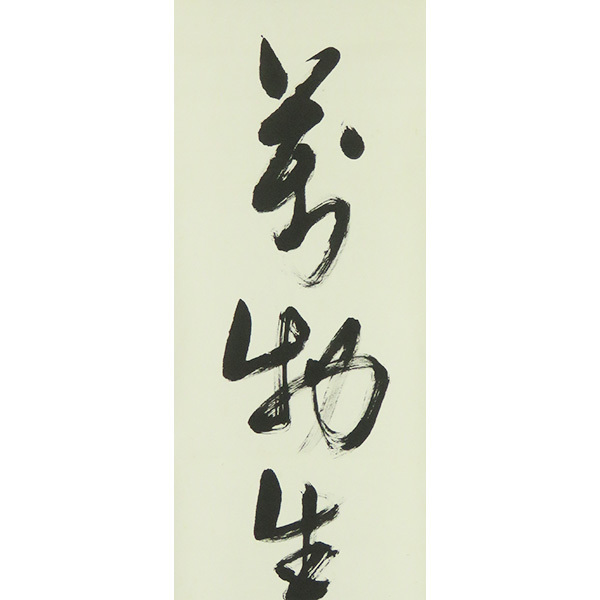 萬物生